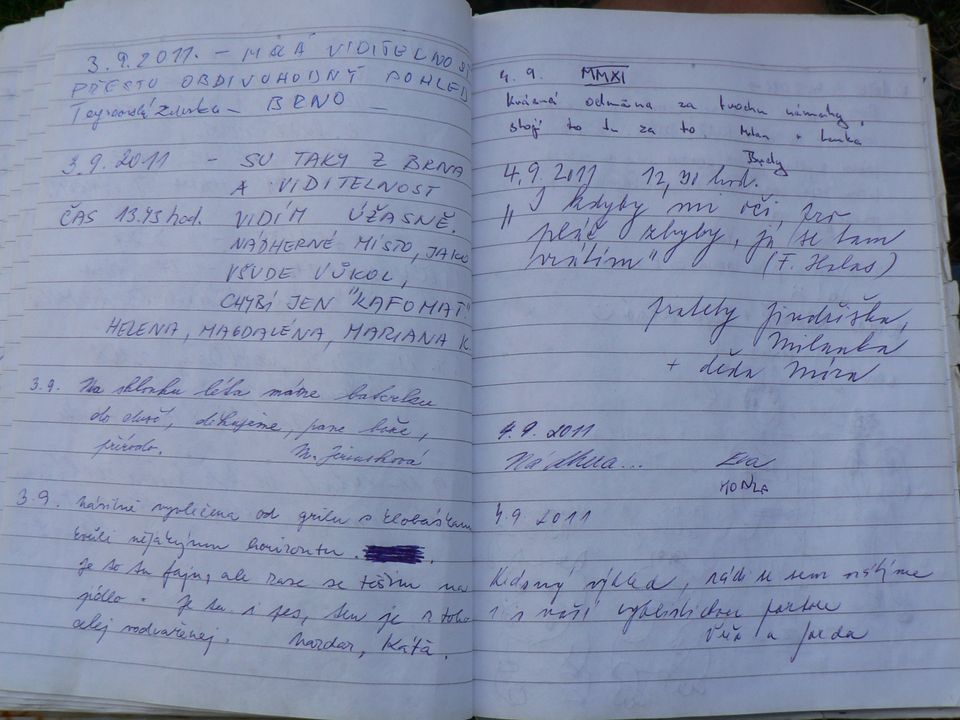 3.9.2011. - MALÁ VIDITELNOST
PŘESTO OBDIVUHODNÝ POHLED
BRNO -
3.9.2011 - SU TAKY Z BRNA
A VIDITELNOST
ČAS 13.43 hod. VIDÍM ÚŽASNĚ.
NÁDHERNÉ MÍSTO, JAKO
VŠUDE VŮKOL,
CHYBÍ JEN "KAFOMAT"
HELENA, MAGDALENA, MARIANA K.
3.9. Na sklonku léta máme
do duší, děkujeme, pane bože,
přírodo. M.
3.9. násilně vyvlečena od grilu s klobáskami
kvůli nějakýmu horizontu.
Je to tu fajn, ale zase se těším na
jídlo. Je tu i pes, ten je z toho
celej Nazdar, Káťa.
4.9. MMXI
Krásná odměna za trochu námahy,
stojí to tu za to. Milan + Lenka
4.9.2011 12,30 hod.
"I kdyby mi oči pro
pláč zbyly, já se tam
vrátím" (F. Halas)
Jindřiška,
Milanka
+ děda Míra
4.9.2011
Nádhera... Eva
HONZA
4.9 2011
Krásný výhled, rádi se sem vrátíme
i s naší cyklistickou partou
a Jarda